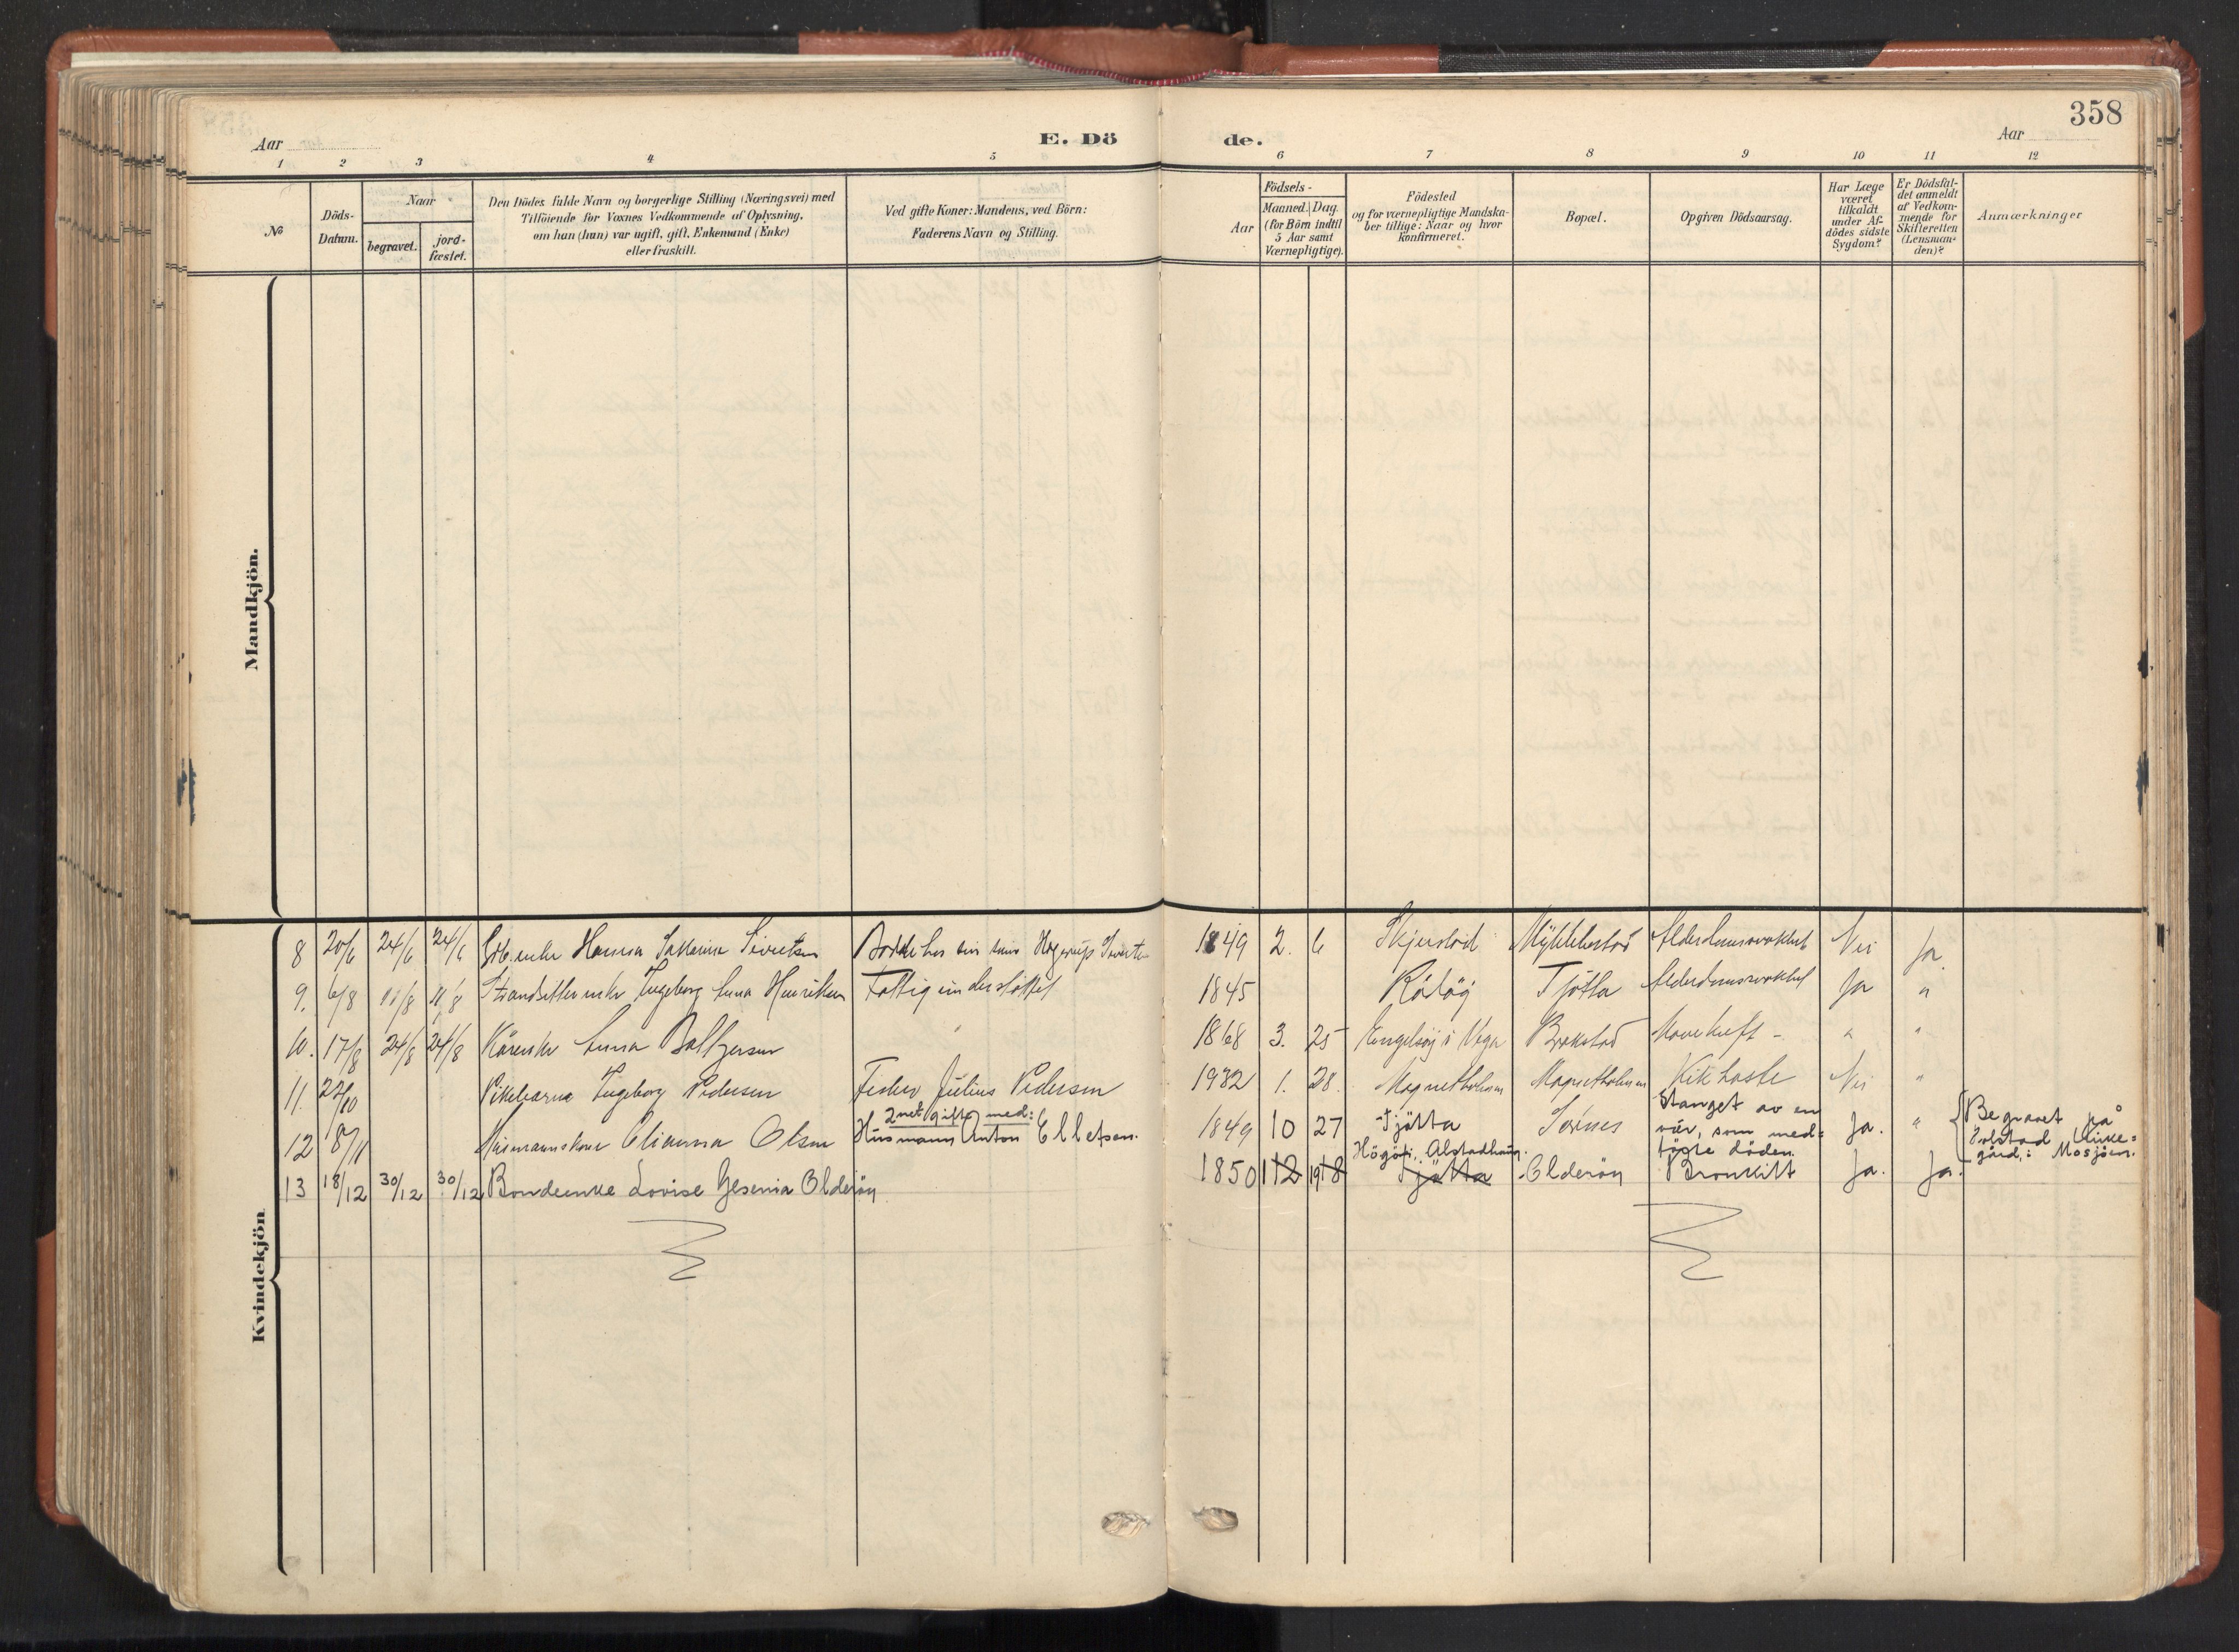 358
Aar
E. Dö
de.
Aar
1 2 3 4 5 6 7 8 9 10 11 12
No
Döds-Datum.
Naar
begravet.
jord-fæstet.
Den Dödes fulde Navn og borgerlige Stilling (Næringsvei) med
Tilföiende for Voxnes Vedkommende af Oplysning,
om han (hun) var ugift, gift, Enkemand (Enke)
eller fraskilt.
Ved gifte Koner: Mandens, ved Börn:
Faderens Navn og Stilling.
Aar
Födsels-
Maaned. Dag.
(for Börn indtil
5 Aar samt
Værnepligtige).
Födested
og for værnepligtige Mandska-
ber tillige: Naar og hvor
konfirmeret.
Bopæl.
Opgiven Dödsaarsag.
Har Læge
været
tilkaldt
under Af-
dödes sidste
Sygdom?
Er Dödsfal-
det anmeldt
af Vedkom-
mende for
Skifteretten
(Lensman-
den)?
Anmærkninger
Mandkjön.
Kvindekjön
8 20/6 24/6 24/6 Hanna 1849 2. 6 Alderdomssvakhet Nei Ja
9. 6/8 11/8 11/8 Ingeborg Anna Henriksen Fattigunderstöttet 1845 Tjötta Alderdomssvakhet Ja "
10. 17/8 24/8 24/8 Kårenke Anna Baltzersen 1868 3. 25 i Vega Brokstad Mavekreft - " "
11. 22/10 Pikebarna Ingeborg Pedersen Fisker Julius Pedersen 1932 1. 28. Magnetholmen Magnetholmen Kikhoste Nei "
2net gift med:
12 8/11 Husmannskone Olianna Olsen Husmann Anton Elletsen. 1849 10 27 Tjötta Sörnes Stanget av en
vær, som med=
förte döden. Ja. " Begravet på
kirke=
gård, i Mosjöen.
13 18/12 30/12 30/12 Bondeenke Lovise Jesenia Olderöy 1850 Alstadhaug. Tjøtta Olderöy Bronkitt Ja. Ja.